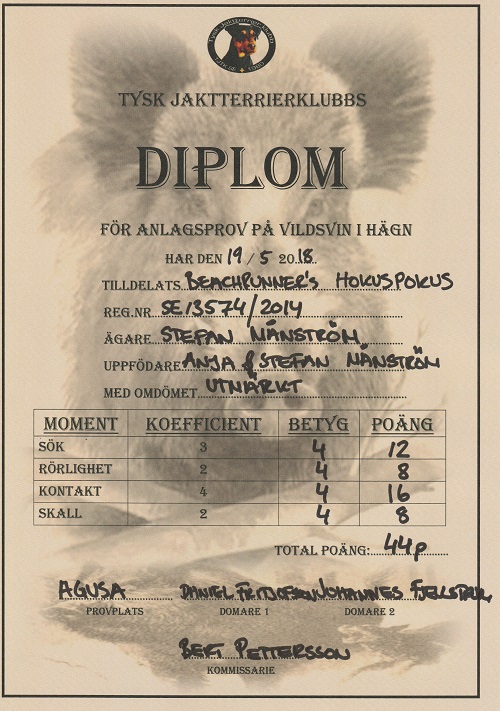 TYSK JAKTTERRIERKLUBBS
DIPLOM
FÖR ANLAGSPROV PÅ VILDSVIN I HÄGN
HAR DEN 19 / 5 2018
TILLDELATS BEACHRUNNER'S HOKUSPOKUS
REG.NR. SE13574/2014
ÄGARE STEFAN MÅNSTRÖM
UPPFÖDARE ANJA & STEFAN MÅNSTRÖM
MED OMDÖMET UTMÄRKT
MOMENT KOEFFICIENT BETYG POÄNG
SÖK 3 4 12
RÖRLIGHET 2 4 8
KONTAKT 4 4 16
SKALL 2 4 8
TOTAL POÄNG: 44p
AGUSA DANIEL JOHANNES
PROVPLATS DOMARE 1 DOMARE 2
BERT PETTERSSON
KOMMISSARIE